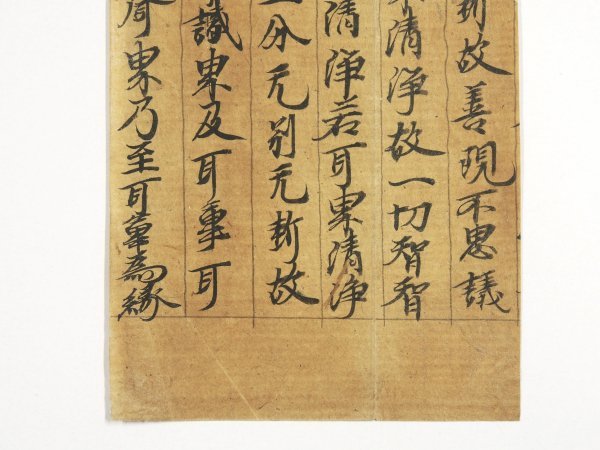 断故善現不思議
清淨故一切智智
清淨若耳界清淨
二分无別无断故
識界及耳觸耳
界乃至耳觸為緣